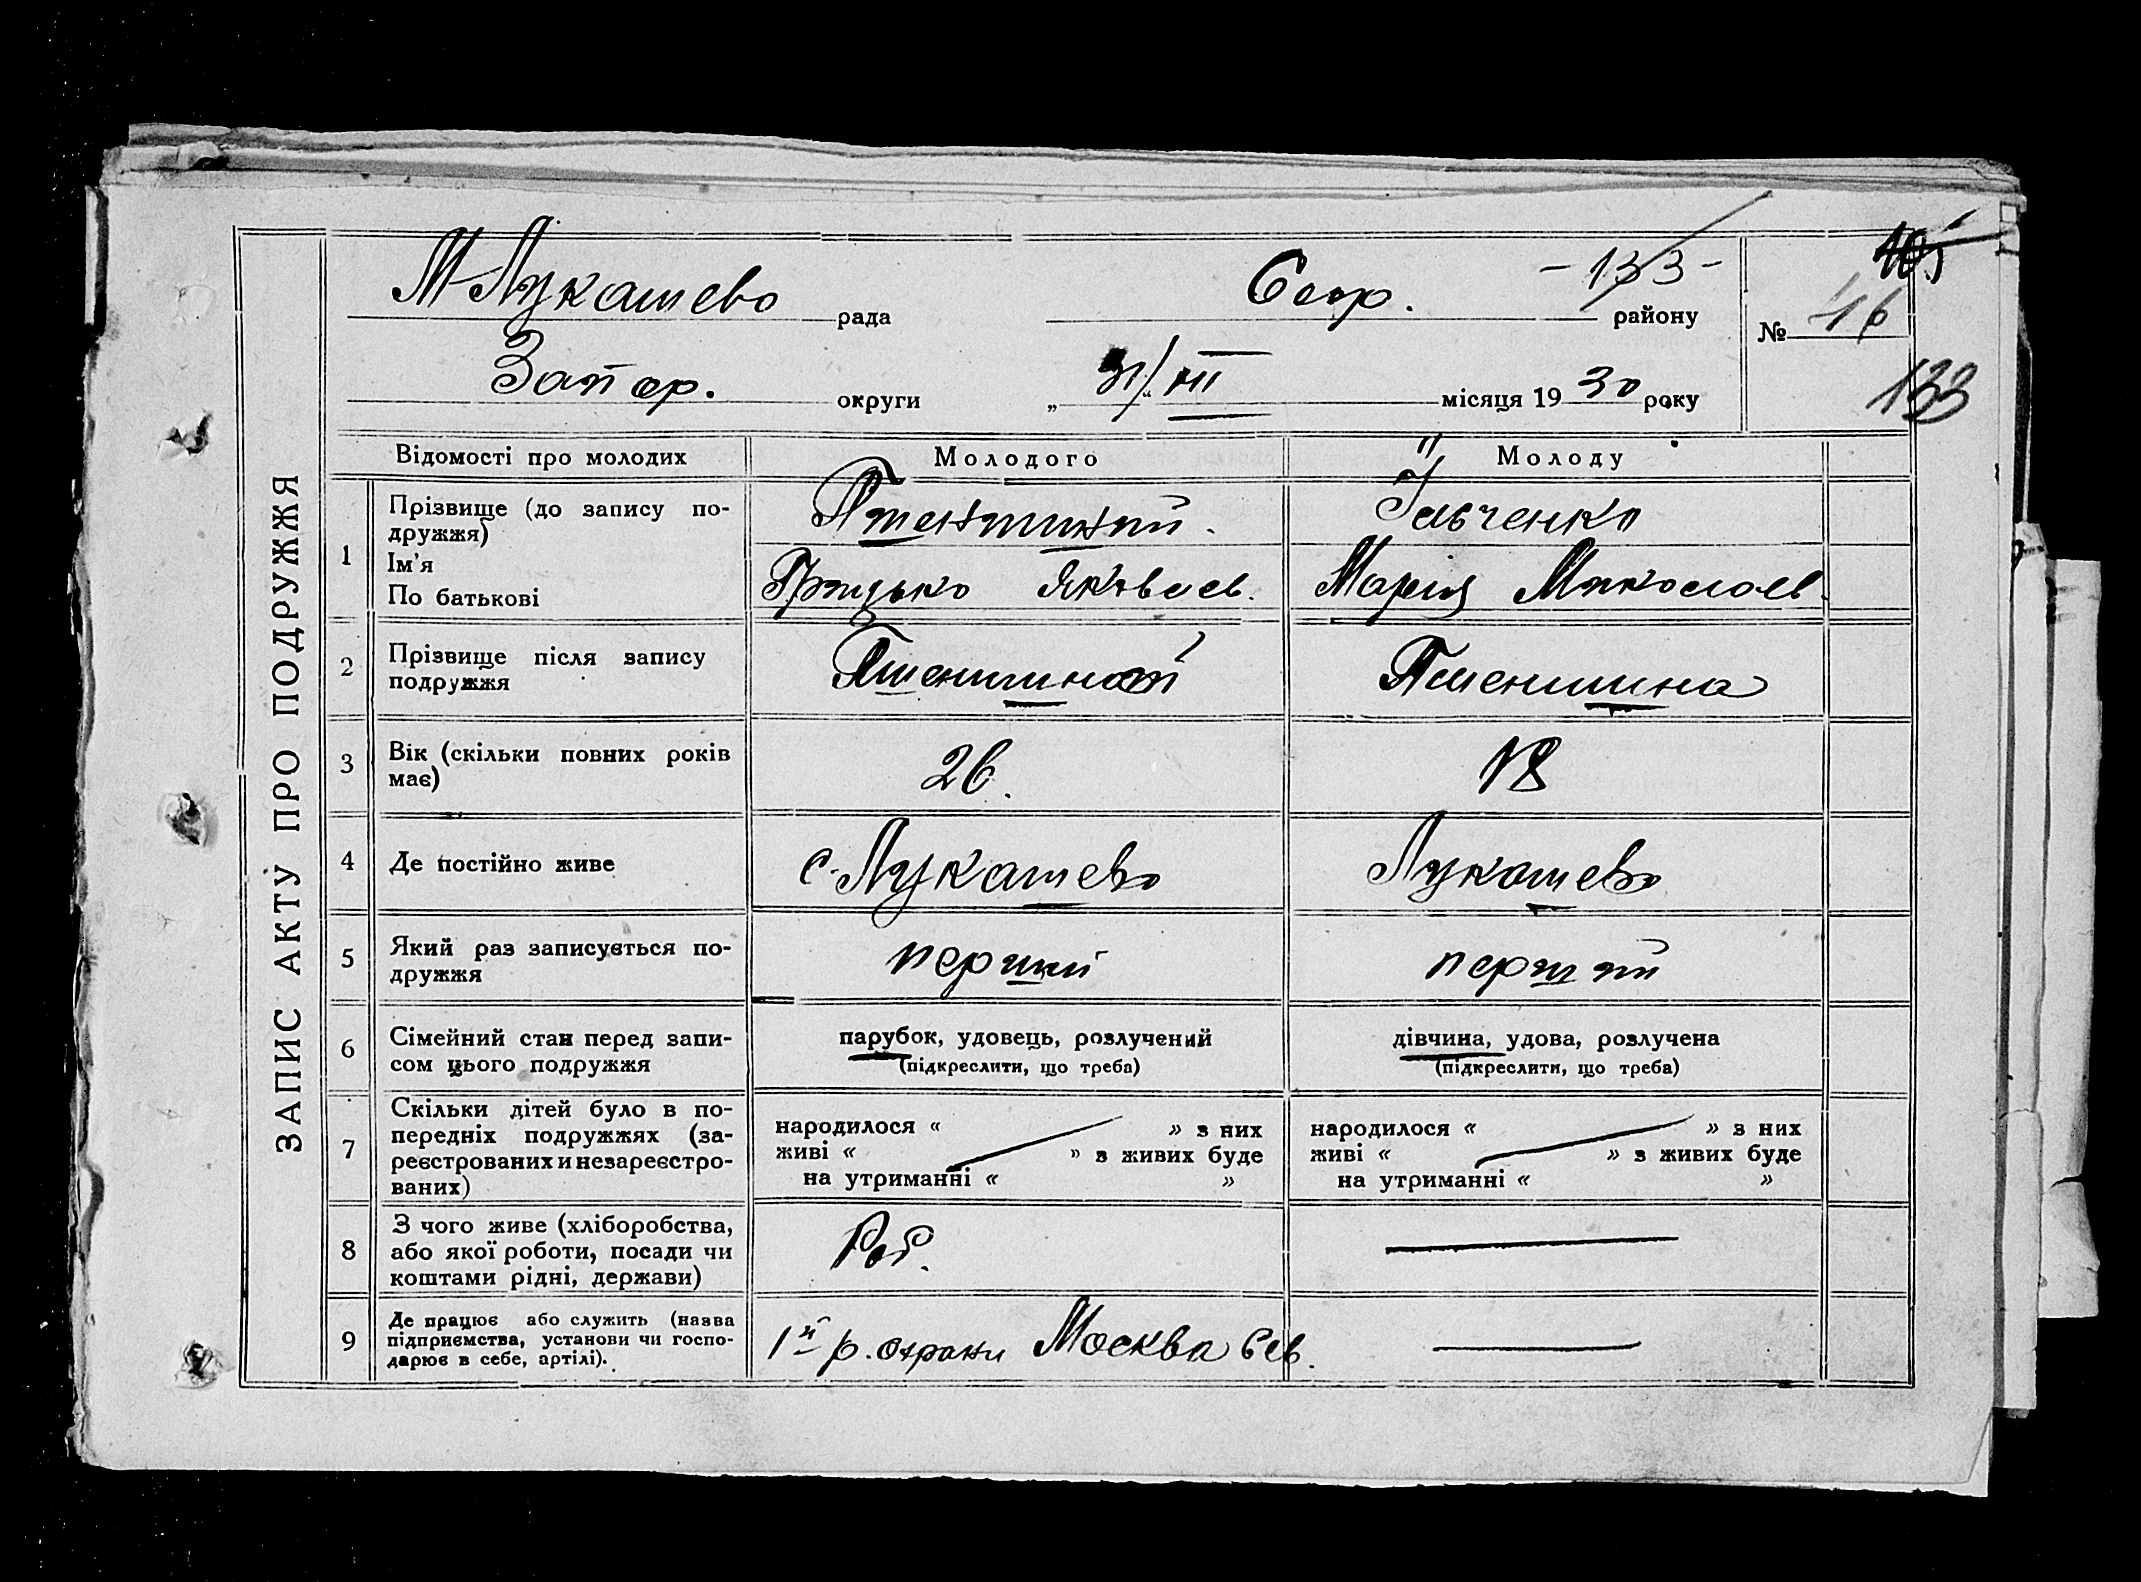 ЗАПИС АКТУ ПРО ПОДРУЖЖЯ
М-Лукашево рада
Запор. округи
- 133 - району
31/XII місяця 1930 року
№ 46
133
Відомості про молодих
Молодого
Молоду
1
Прізвище (до запису по-
дружжя)
Ім'я
По батькові
Грицько Яковлев.
Марія Миколаєв.
2
Прізвище після запису
подружжя
Пшенишной
Пшенишна
3
Вік (скільки повних років
має)
26.
18
4
Де постійно живе
с. Лукашево
Лукашево
5
Який раз записується по-
дружжя
перший
перший
6
Сімейний стан перед запи-
сом цього подружжя
парубок, удовець, розлучений
(підкреслити, що треба)
дівчина, удова, розлучена
(підкреслити, що треба)
7
Скільки дітей було в по-
передніх подружжях (за-
реєстрованих и незареєстро-
ваних)
народилося « » з них
живі « » з живих буде
на утриманні « »
народилося « » з них
живі « » з живих буде
на утриманні « »
8
З чого живе (хліборобства,
або якої роботи, посади чи
коштами рідні, держави)
Роб.
9
Де працює або служить (назва
підприємства, установи чи госпо-
дарює в себе, артілі).
1й р. охрани Москва